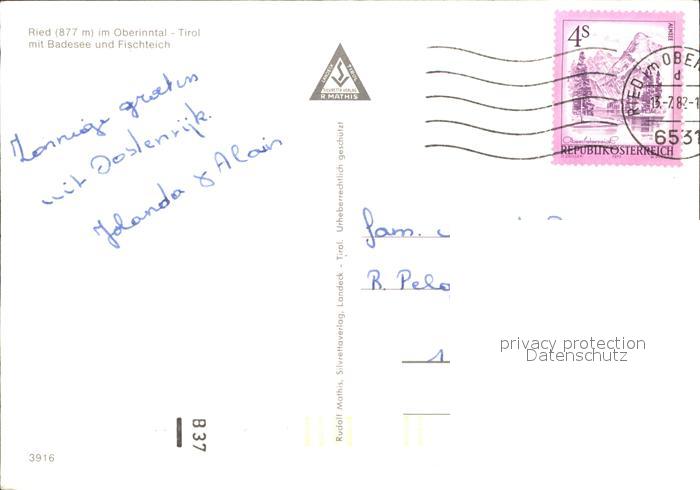 Ried (877 m) im Oberinntal - Tirol
mit Badesee und Fischteich
LANDECK TIROL
SILVRETTA VERLAG
R. MATHIS
4S
ALMSEE
REPUBLIK ÖSTERREICH
RIED im OBER
d
13.-7.82-1
6531
Zonnige groeten
uit Oostenrijk.
Jolanda & Alain
Rudolf Mathis, Silvrettaverlag, Landeck - Tirol. Urheberrechtlich geschützt
fam.
R. Pelo
1
privacy protection
Datenschutz
B37
3916